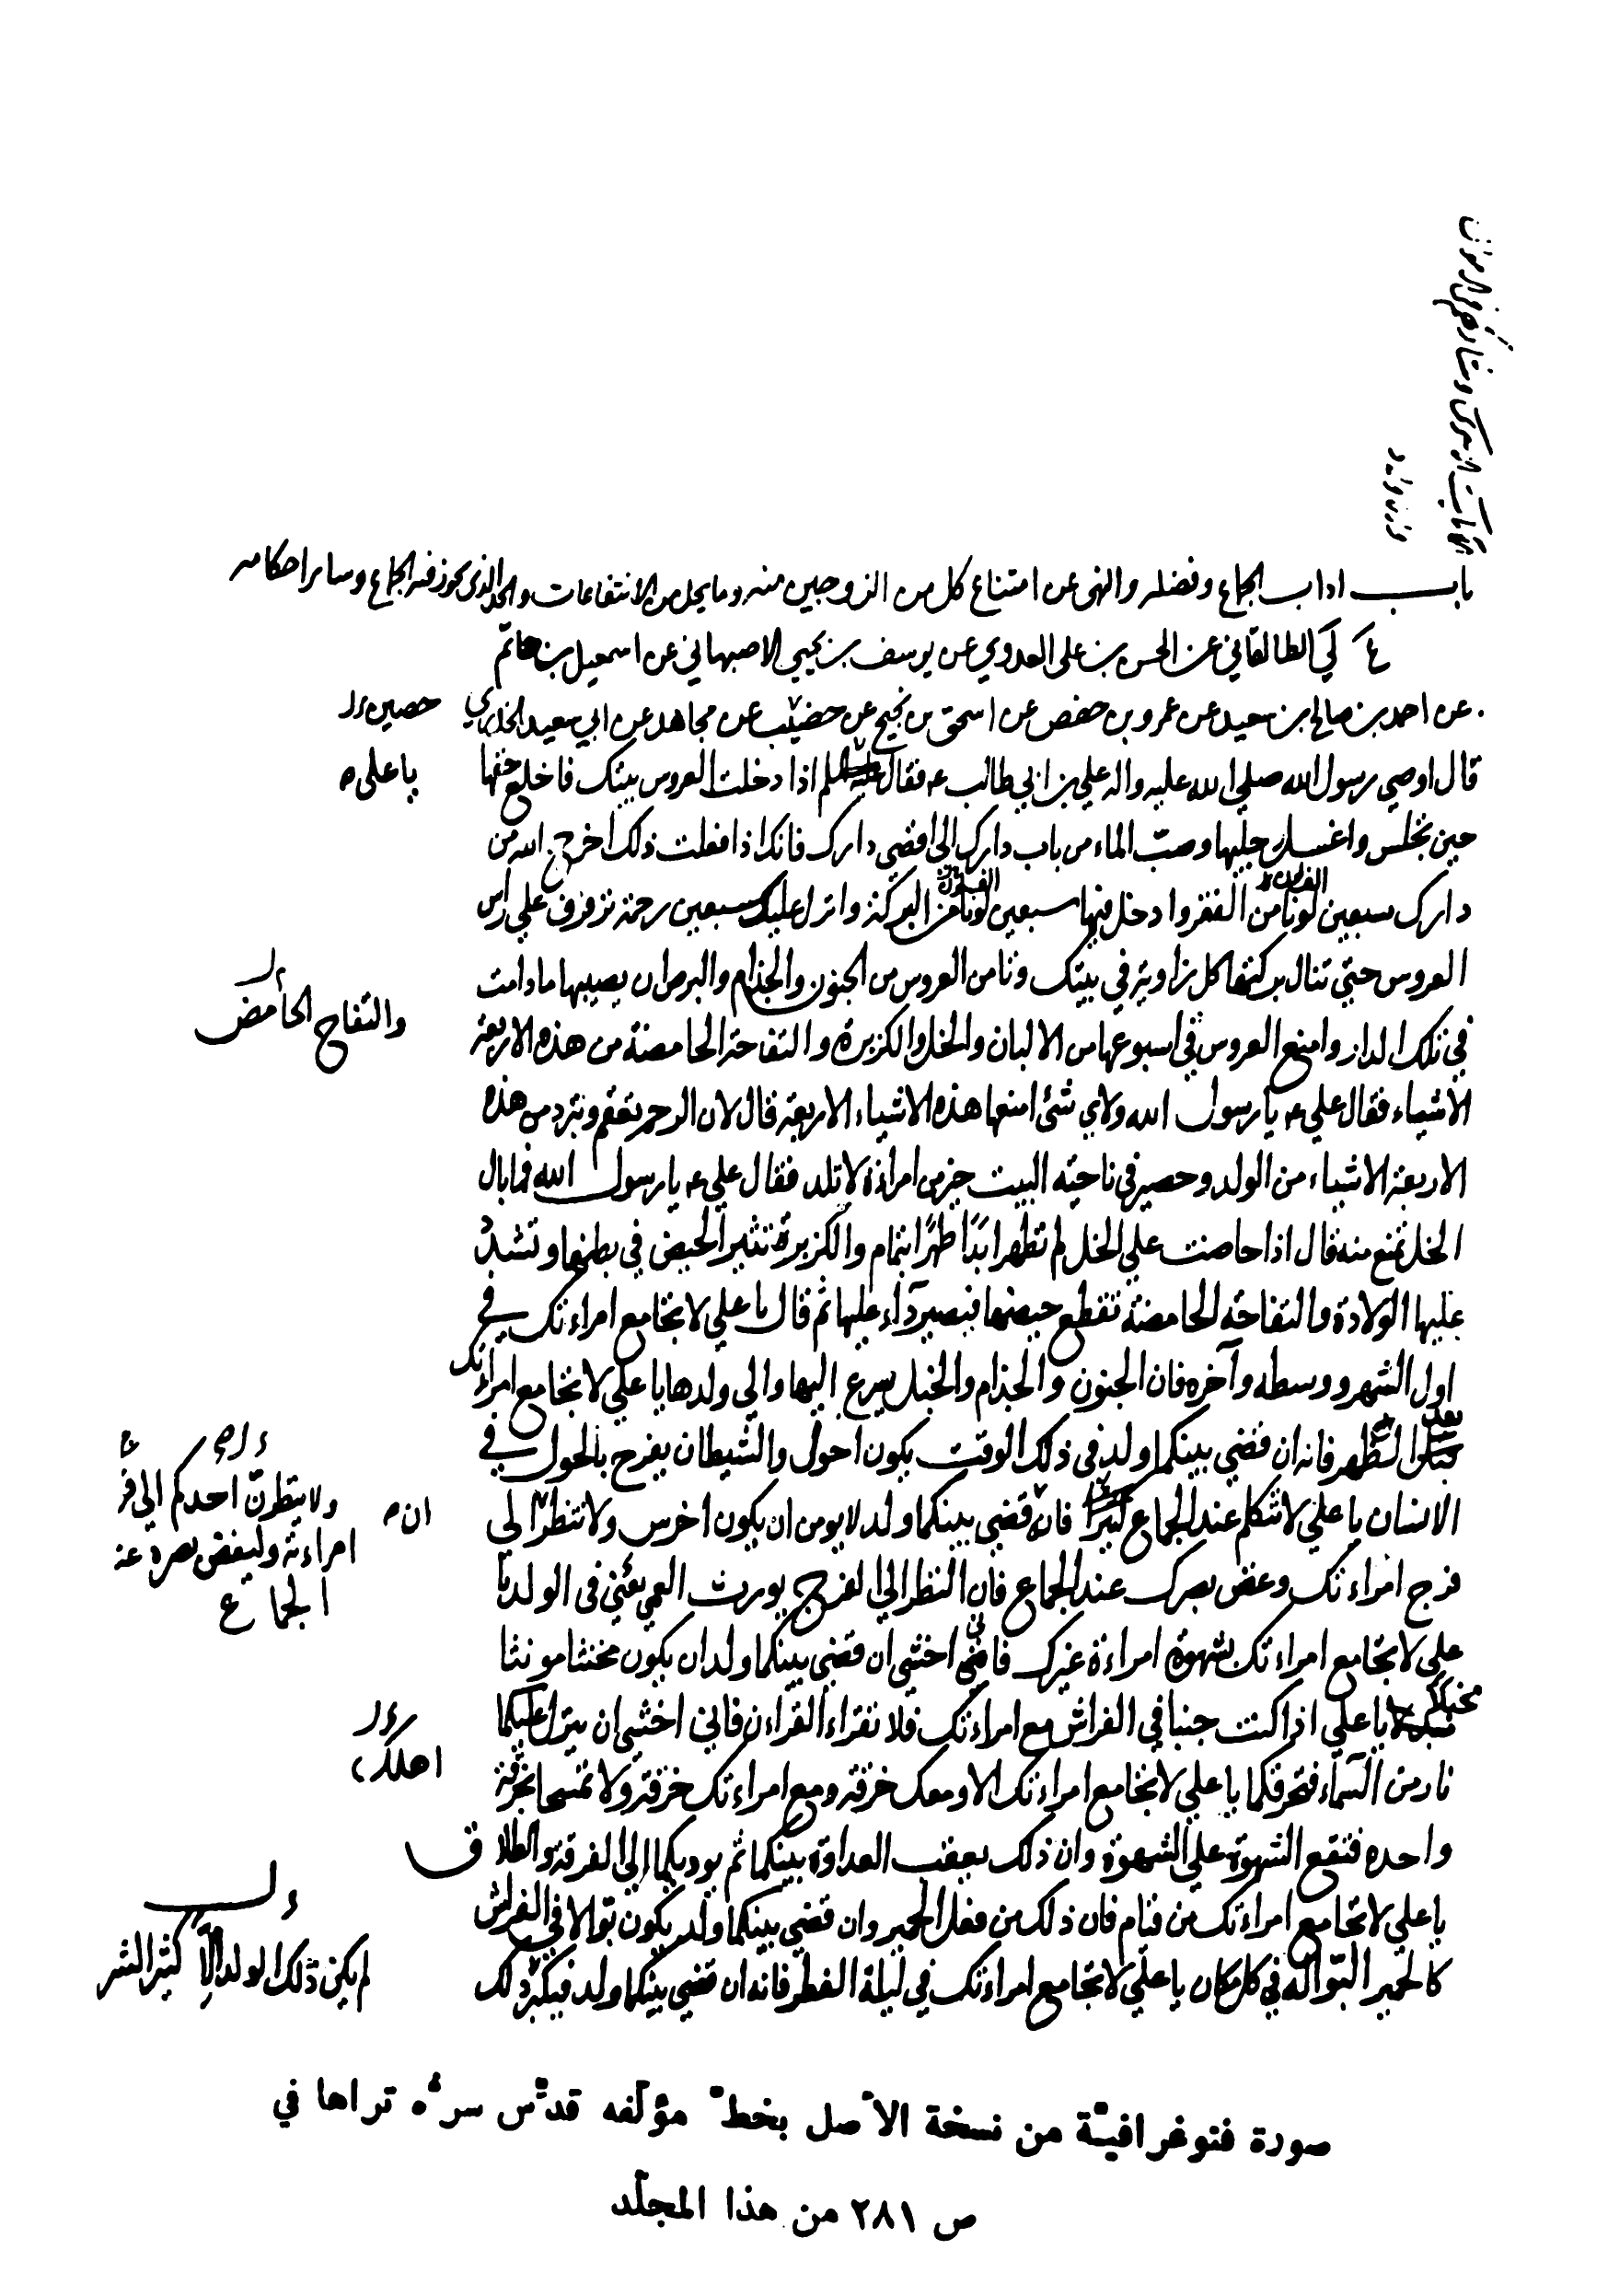 باب اداب الجماع وفضله والنهى عن امتناع كل من الزوجين منه وما يحل من الانتفاعات والحد الذى يجوز فيه الجماع وساير احكامه
ع لي الطالقاني عن الحسن بن على العدوي عن يوسف بن يحيي الاصبهاني عن اسمعيل بن حاتم
عن احمد بن صالح بن سعيد عن عمرو بن حفص عن اسحق بن نجيح عن حضيب عن مجاهد عن ابي سعيد الخدري
حصين
قال اوصي رسول الله صلي الله عليه واله علي بن ابي طالب ع فقال اذا دخلت العروس بيتك فاخلع خفها
يا على
حين تجلس واغسل رجليها وصب الماء من باب دارك الى اقصي دارك فانك اذا فعلت ذلك اخرج الله من
دارك سبعين لونا من الفقر وادخل فيها سبعين لونا من البركة وانزل عليك سبعين رحمة ترفرف علي راس
العروس حتي تنال بركتها كل زاوية في بيتك وتامن العروس من الجنون والجذام والبرص ان يصيبها ما دامت
في تلك الدار وامنع العروس في اسبوعها من الالبان والخل والكزبرة والتفاحة الحامضة من هذه الاربعة
والتفاح الحامض
الاشياء فقال علي ع يا رسول الله ولاي شئ امنعها هذه الاشياء الاربعة قال لان الرحم تعقم وتبرد من هذه
الاربعة الاشياء من الولد وحصير في ناحية البيت خير من امراءة لا تلد فقال علي ع يا رسول الله فما بال
الخل تمنع منه قال اذا حاضت علي الخل لم تطهر ابدًا طهرًا بتمام والكزبرة تثير الحيض في بطنها وتشدّ
عليها الولادة والتفاحة الحامضة تقطع حيضها فيصير داء عليها ثم قال يا علي لا تجامع امراءتك في
اول الشهر ووسطه وآخره فان الجنون والجذام والخبل يسرع اليها والي ولدها يا علي لا تجامع امراءتك
بعد الظهر فانه ان قضي بينكما ولد في ذلك الوقت يكون احول والشيطان يفرح بالحول في
الانسان يا علي لا تتكلم عند الجماع فانه قضي بينكما ولد لا يومن ان يكون اخرس ولا تنظر الى
ان
ولا ينظرنّ احدكم الي فرج
امراءته وليغض بصره عند
الجماع
فرج امراءتك وغض بصرك عند الجماع فان النظر الي الفرج يورث العمي يعني في الولد يا
علي لا تجامع امراءتك بشهوة امراءة غيرك فاني اخشي ان قضي بينكما ولد ان يكون مخنثا مونثا
مخبلا يا علي اذا كنت جنبا في الفراش مع امراءتك فلا تقراء القراءن فاني اخشي ان ينزل عليكما
نار من السّماء فتحرقكما يا علي لا تجامع امراءتك الا ومعك خرقة ومع امراءتك خرقة ولا تمسحا بخرقة
اهلك
واحدة فتقع الشهوة علي الشهوة وان ذلك يعقب العداوة بينكما ثم يوديكما الي الفرقة والطلاق
يا علي لا تجامع امراءتك من قيام فان ذلك من فعل الحمير وان قضي بينكما ولد يكون بوّالا في الفراش
كالحمير البوّالة في كل مكان يا علي لا تجامع امراءتك في ليلة الفطر فانه ان قضي بينكما ولد فيكبر ذلك
لم يكن ذلك الولد الّا كثير الشر
صورة فتوغرافيّة من نسخة الأصل بخطّ مؤلّفه قدّس سرّه تراها في
ص ٢٨١ من هذا المجلّد